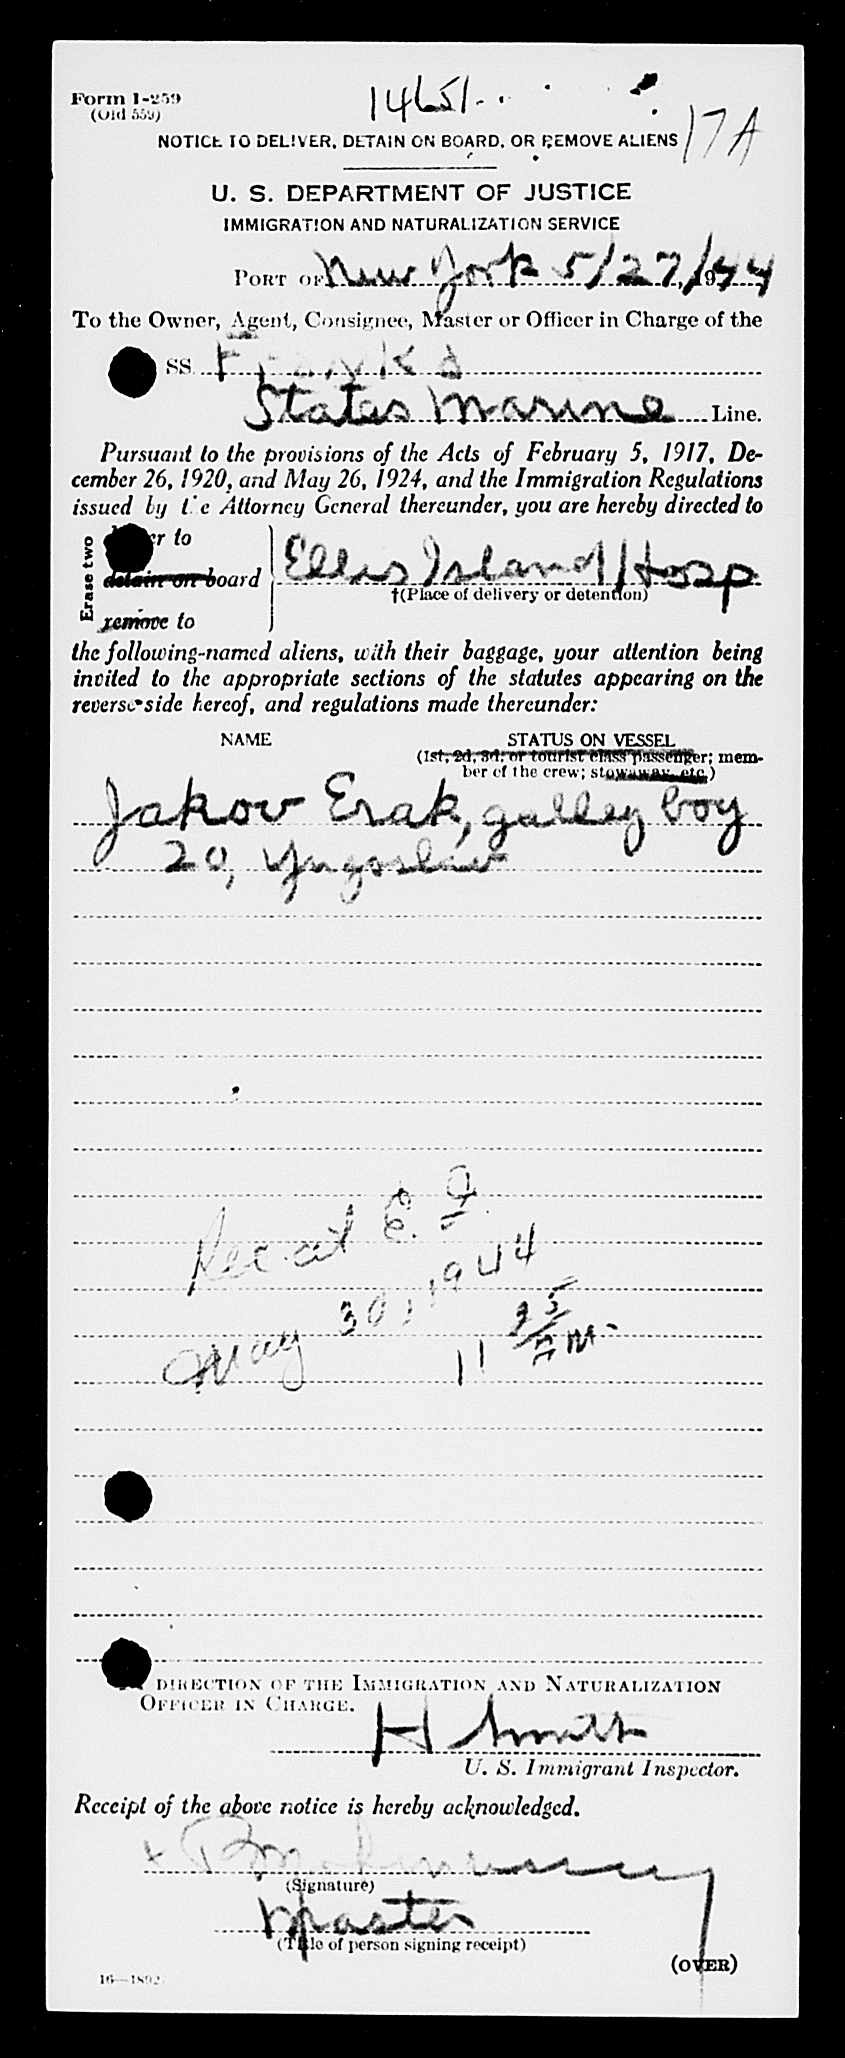 Form I-259
(Old 559)
14651
17A
NOTICE TO DELIVER, DETAIN ON BOARD, OR REMOVE ALIENS
U. S. DEPARTMENT OF JUSTICE
IMMIGRATION AND NATURALIZATION SERVICE
PORT OF New York 5/27, 1944
To the Owner, Agent, Consignee, Master or Officer in Charge of the
SS.
States Marine Line.
Pursuant to the provisions of the Acts of February 5, 1917, De-
cember 26, 1920, and May 26, 1924, and the Immigration Regulations
issued by the Attorney General thereunder, you are hereby directed to
Erase two
to
detain on board
remove to
Ellis Island Hosp
†(Place of delivery or detention)
the following-named aliens, with their baggage, your attention being
invited to the appropriate sections of the statutes appearing on the
reverse side hereof, and regulations made thereunder:
NAME STATUS ON VESSEL
(1st, 2d, 3d, or tourist class passenger; mem-
ber of the crew; stowaway, etc.)
Jakov Erak, galley boy
20, Yugoslav
Rec. at E. I.
May 30, 1944
11 25 AM.
DIRECTION OF THE IMMIGRATION AND NATURALIZATION
OFFICER IN CHARGE.
H Smith
U. S. Immigrant Inspector.
Receipt of the above notice is hereby acknowledged.
x
(Signature)
Master
(Title of person signing receipt)
(OVER)